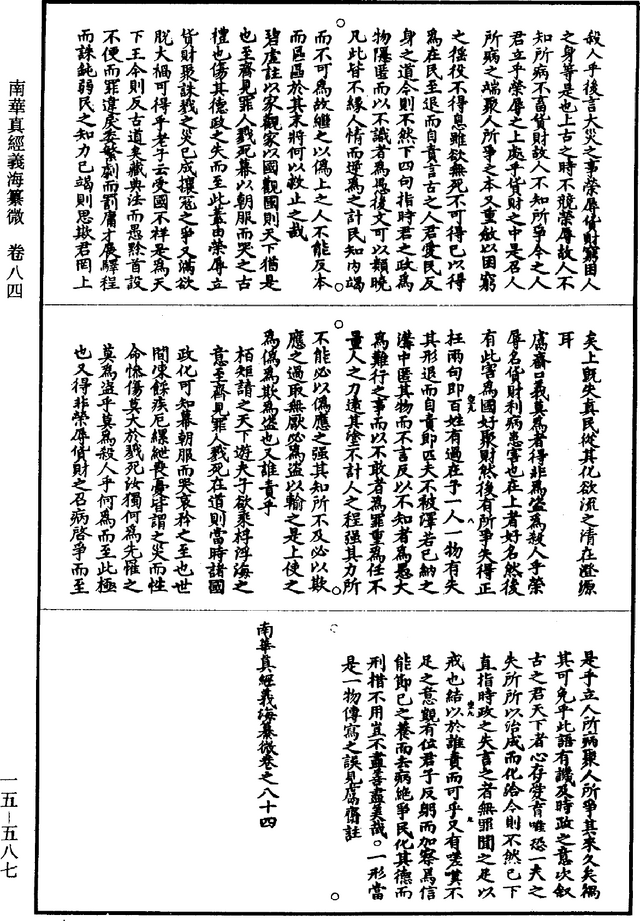 殺人乎後言大災之事榮辱貨財窮困人
之身等是也上古之時不競榮辱故人不
知所病不畜貨財故人不知所爭今之人
君立乎榮辱之上處乎貨財之中是召人
所病之端聚人所爭之本又重斂以困窮
之徭役不得息雖欲無死不可得已以得
為在民至退而自責言古之人君愛民反
身之道今則不然下四句指時君之政為
物隱匿而以不識者為愚後文可以類曉
凡此皆不緣人情而逆為之計民知內竭
而不可為故繼之以偽上之人不能反本
而區區於其末將何以救止之哉
碧虛註以家觀家以國觀國則天下猶是
也至齊見罪人戮死幕以朝服而哭之古
禮也傷其德政之失而至此蓋由榮辱立
貨財聚誅戮之災已成攘寇之爭又滿欲
脫大禍可得乎老子云受國不祥是為天
下王今則反古道奚藏典法而愚黔首設
不便而罪違戾委繁劇而罰庸才展驛程
而誅鈍弱民之知力已竭則思欺君罔上
矣上既失真民從其化欲流之清在澄源
耳
鬳齋口義莫為者得非為盜為殺人乎榮
辱名貨財利病患害也在上者好名然後
有此害為國好聚財然後有所爭失得正
枉兩句即百姓有過在予一人一物有失
其形退而自責即匹夫不被澤若已納之
溝中匿其物而不言反以不知者為愚大
為難行之事而以不敢者為罪重為任不
量人之力遠其塗不計人之程強其力所
不能必以偽應之強其知所不及必以欺
應之過取無厭必為盜以輸之是上使之
為偽為欺為盜也又誰責乎
栢矩請之天下遊夫子欲乘桴浮海之
意至齊見罪人戮死在道則當時諸國
政化可知幕朝服而哭哀矜之至也世
間凍餒疾厄縲紲喪憂皆謂之災而性
命慘傷莫大於戮死汝獨何為先罹之
莫為盜乎莫為殺人乎何為而至此極
也又得非榮辱貨財之召病啓爭而至
是乎立人所病聚人所爭其來久矣禍
其可免乎此語有譏及時政之意次叙
古之君天下者心存愛育唯恐一夫之
失所所以治成而化洽今則不然已下
直指時政之失言之者無罪聞之足以
戒也結以於誰責而可乎又有嗟嘆不
足之意觀有位君子反躬而加察為信
能節己之養而去病絕爭民化其德而
刑措不用豈不盡善盡美哉○一形當
是一物傳寫之誤見鬳齋註
南華真經義海纂微卷之八十四
南華真經義海纂微　卷八四
一五—五八七